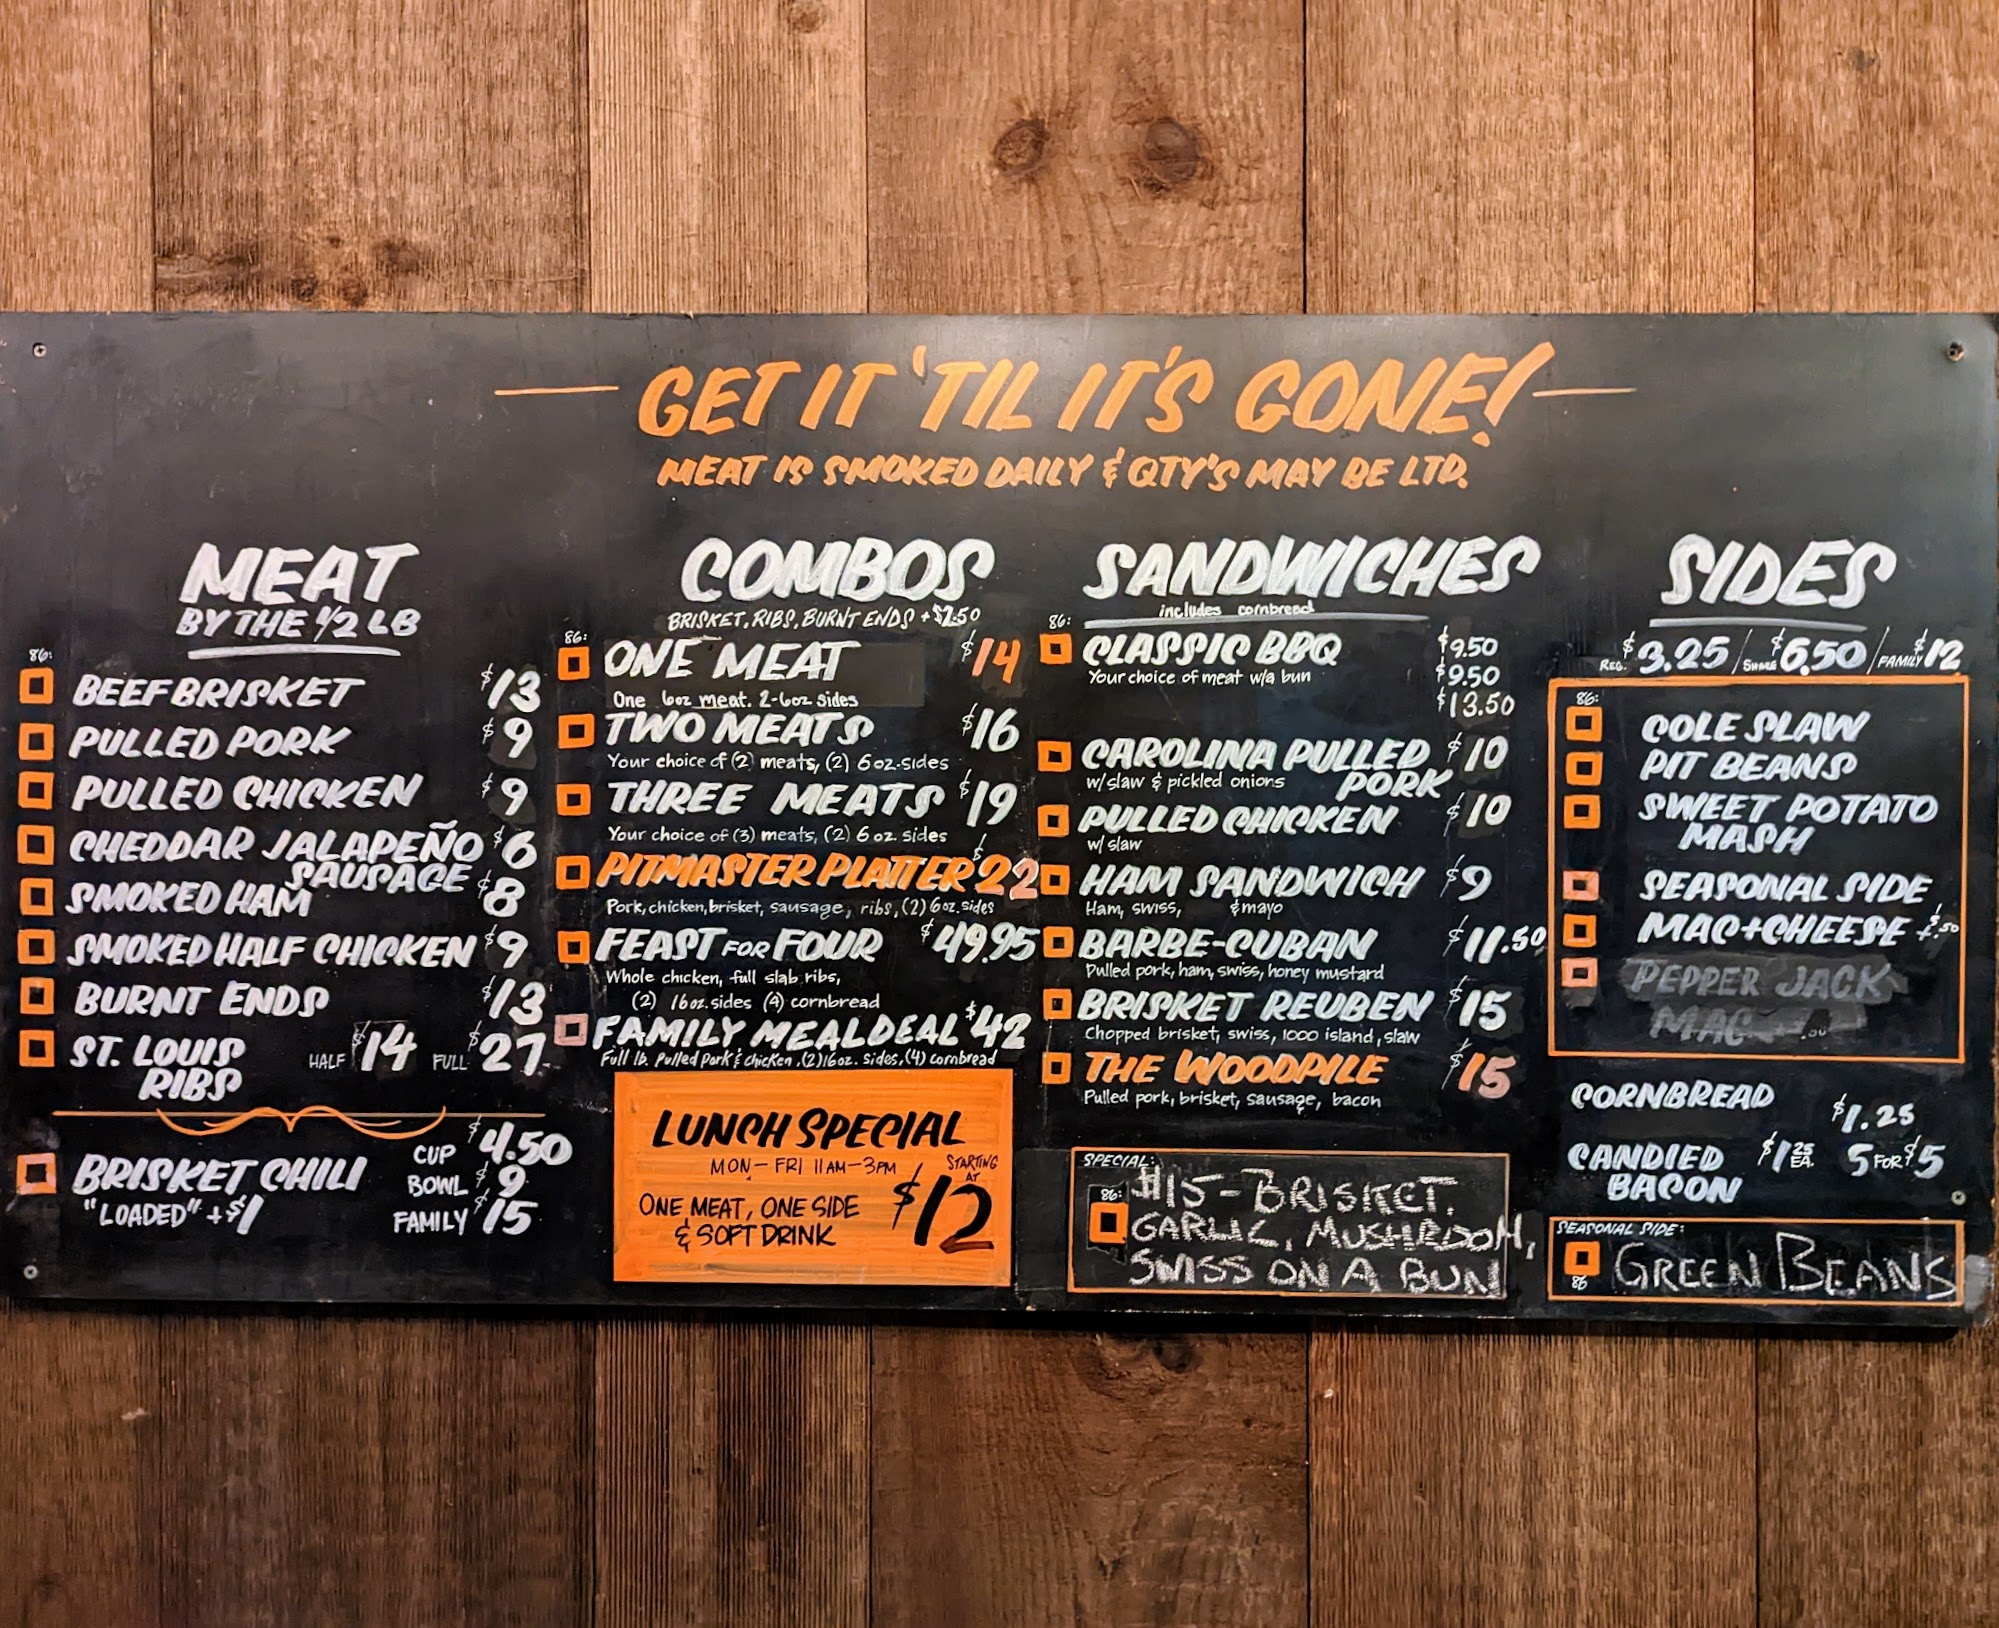 GET IT 'TIL IT'S GONE!
MEAT IS SMOKED DAILY & QTY'S MAY BE LTD.
MEAT
BY THE 1/2 LB
86:
BEEF BRISKET $13
PULLED PORK $9
PULLED CHICKEN $9
CHEDDAR JALAPEÑO $6
SAUSAGE
SMOKED HAM $8
SMOKED HALF CHICKEN $9
BURNT ENDS $13
ST. LOUIS HALF $14 FULL $27
RIBS
BRISKET CHILI
"LOADED" +$1
CUP $4.50
BOWL $9
FAMILY $15
COMBOS
BRISKET, RIBS, BURNT ENDS +$2.50
86:
ONE MEAT $14
One 6oz meat. 2-6oz sides
TWO MEATS $16
Your choice of (2) meats, (2) 6 oz. sides
THREE MEATS $19
Your choice of (3) meats, (2) 6 oz. sides
PITMASTER PLATTER $22
Pork, chicken, brisket, sausage, ribs, (2) 6 oz. sides
FEAST FOR FOUR $49.95
Whole chicken, full slab ribs,
(2) 16oz. sides (4) cornbread
FAMILY MEAL DEAL $42
Full lb. Pulled Pork & chicken, (2) 16oz. sides, (4) cornbread
LUNCH SPECIAL
MON - FRI 11AM-3PM
ONE MEAT, ONE SIDE
& SOFT DRINK
STARTING
AT
$12
SANDWICHES
includes cornbread
86:
CLASSIC BBQ $9.50
Your choice of meat w/a bun $9.50
$13.50
CAROLINA PULLED $10
PORK
w/slaw & pickled onions
PULLED CHICKEN $10
w/ slaw
HAM SANDWICH $9
Ham, swiss, & mayo
BARBE-CUBAN $11.50
Pulled pork, ham, swiss, honey mustard
BRISKET REUBEN $15
Chopped brisket, swiss, 1000 island, slaw
THE WOODPILE $15
Pulled pork, brisket, sausage, bacon
SPECIAL:
86:
$15 - BRISKET,
GARLIC, MUSHROOM,
SWISS ON A BUN
SIDES
REG. $3.25 / SHARE $6.50 / FAMILY $12
86:
COLE SLAW
PIT BEANS
SWEET POTATO
MASH
SEASONAL SIDE
MAC+CHEESE +$.50
PEPPER JACK
MAC
CORNBREAD $1.25
CANDIED $1.25 EA. 5 FOR $5
BACON
SEASONAL SIDE:
86
GREEN BEANS